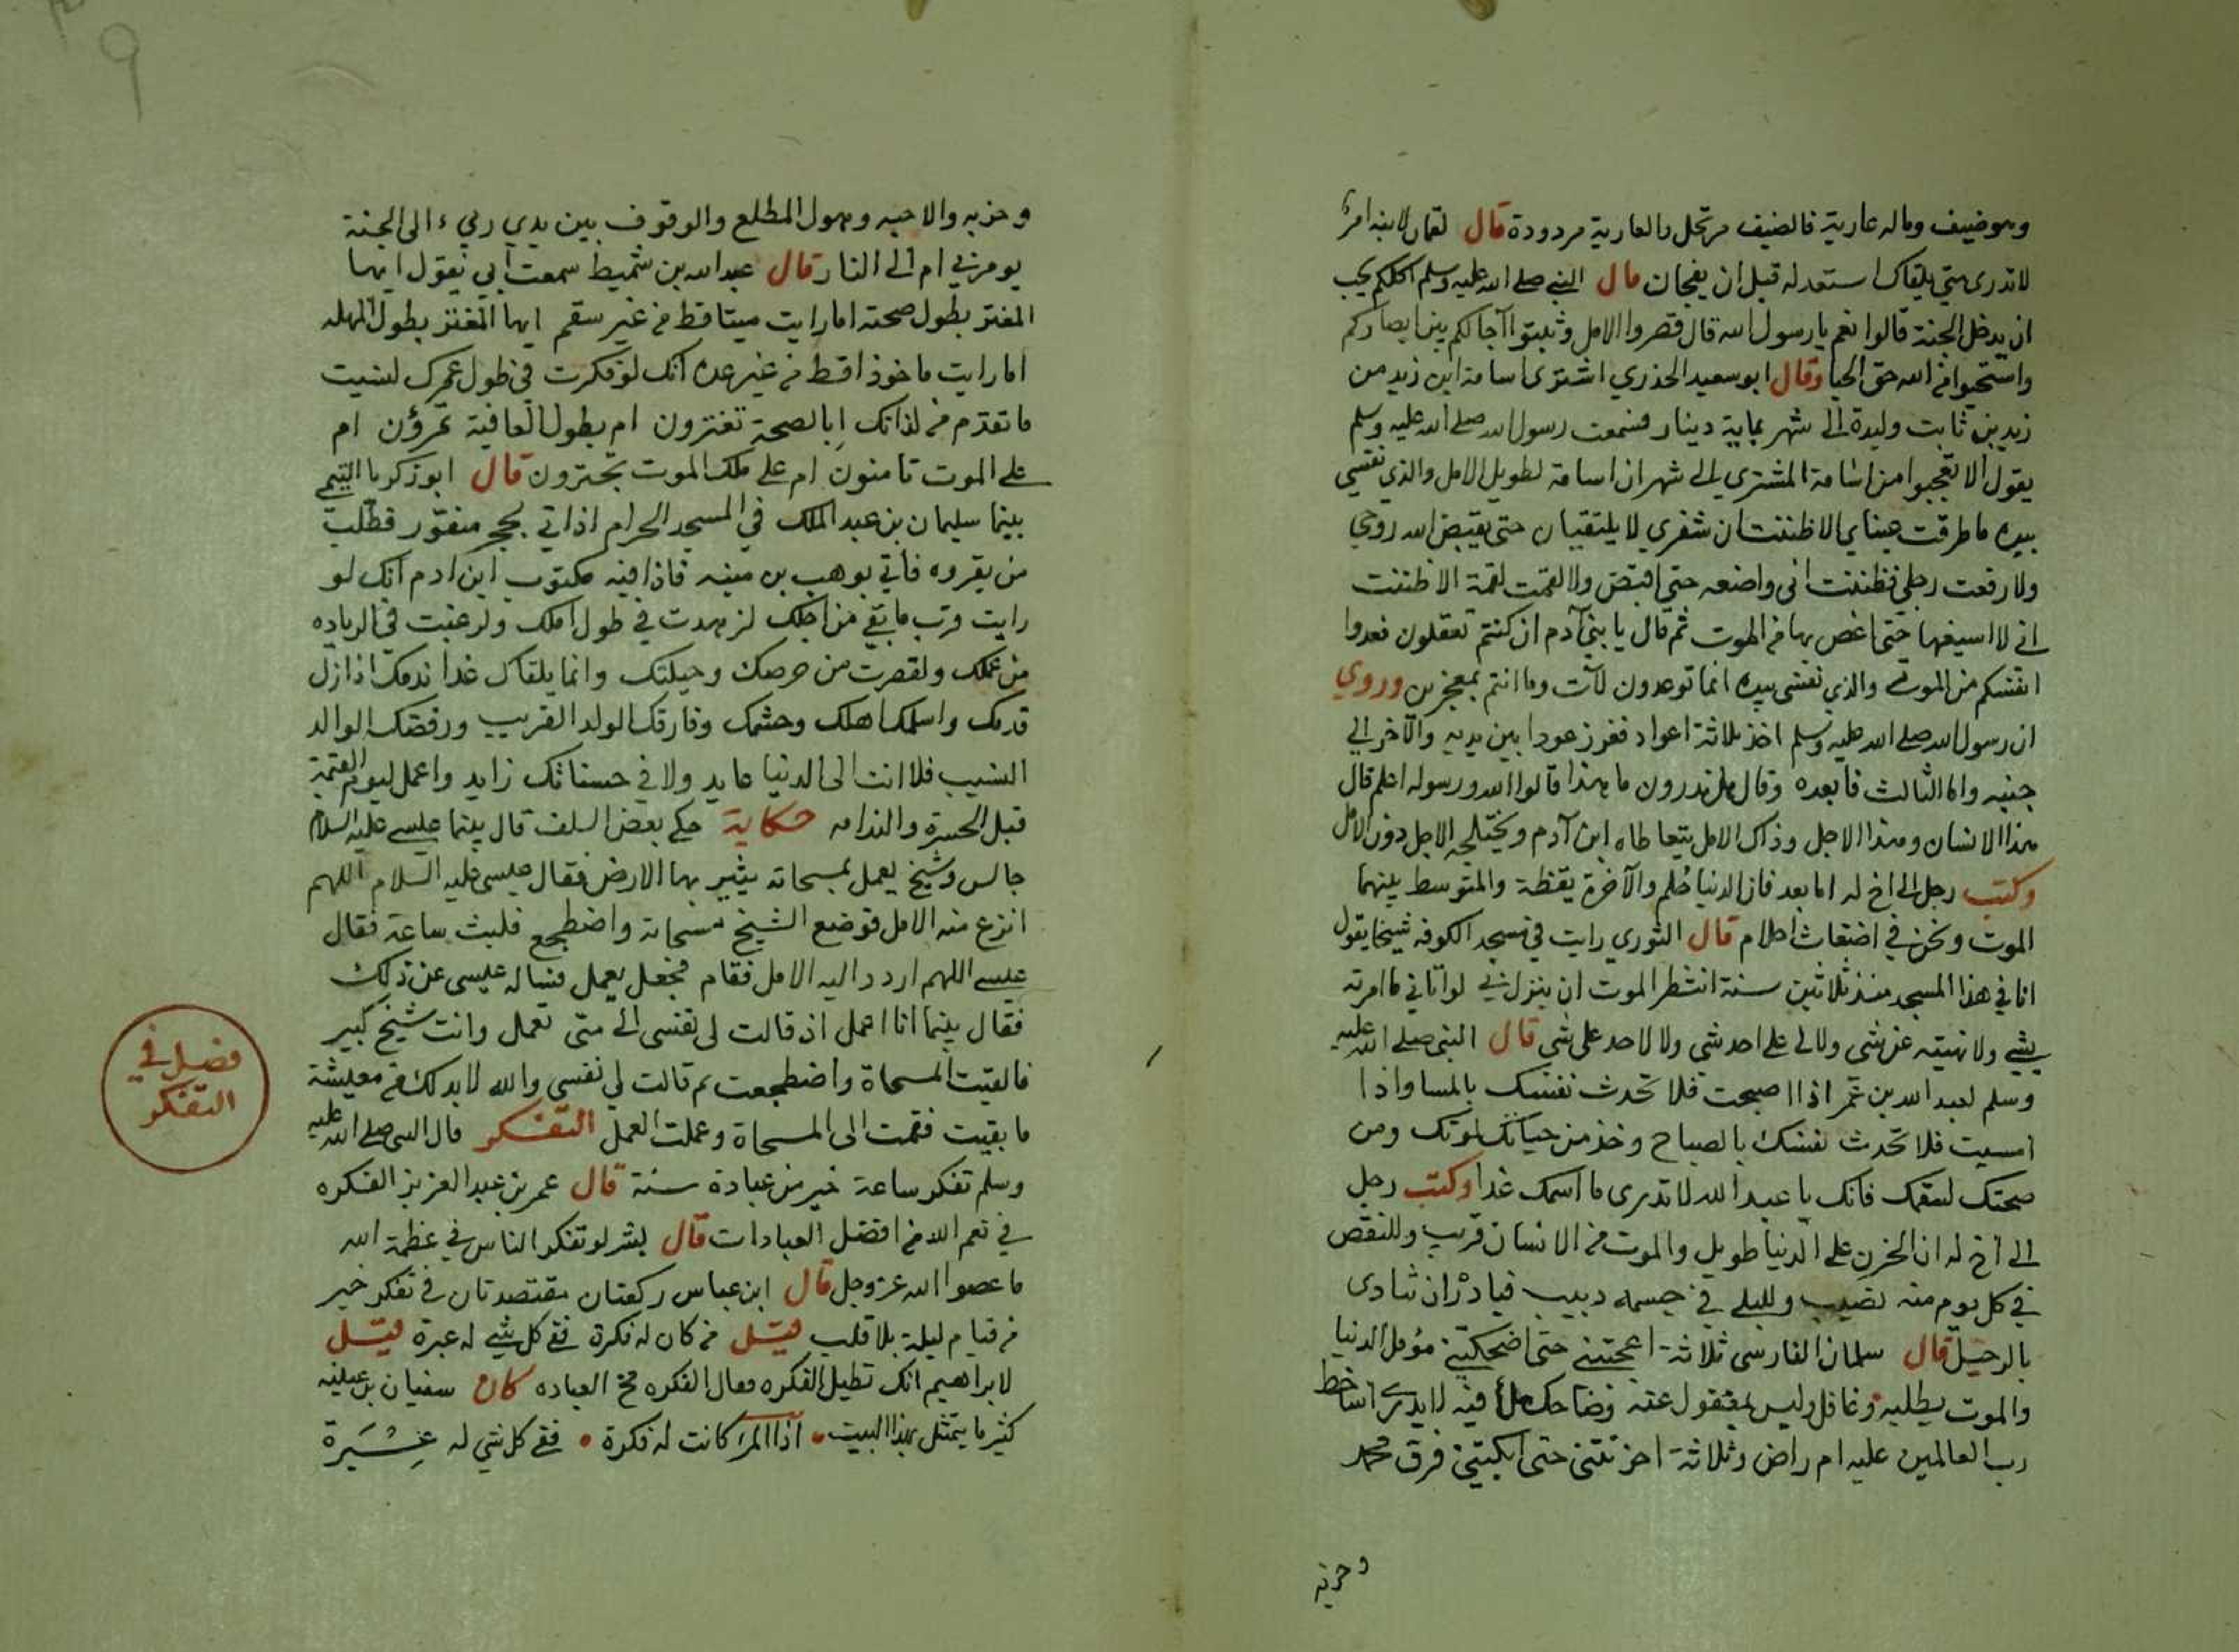 وهو ضيف وماله عارية فالضيف مرتحل والعارية مردودة قال لقمان لابنه امر
لا تدرى متى يلقاك استعد له قبل ان يفجاك قال النبي صلى الله عليه وسلم اكلكم يحب
ان يدخل الجنة قالوا نعم يا رسول الله قال قصروا الامل وثبتوا آجالكم بين ابصاركم
واستحيوا من الله حق الحيا وقال ابو سعيد الخدري اشترى اسامة ابن زيد من
زيد بن ثابت وليدة الى شهر بماية دينار فسمعت رسول الله صلى الله عليه وسلم
يقول الا تعجبوا من اسامة المشتري الى شهر ان اسامة لطويل الامل والذي نفسي
بيده ما طرفت عيناي الا ظننت ان شفري لا يلتقيان حتى يقبض الله روحي
ولا رفعت رجلي فظننت انى واضعه حتى اقبض ولا لقمت لقمة الا ظننت
انى لا اسيغها حتى اغص بها من الموت ثم قال يا بني آدم ان كنتم تعقلون فعدوا
انفسكم من الموتى والذي نفسى بيده انما توعدون لآت وما انتم بمعجزين وروي
ان رسول الله صلى الله عليه وسلم اخذ ثلاثة اعواد فغرز عودا بين يديه والآخر الى
جنبه واما الثالث فابعده وقال هل تدرون ما هذا قالوا الله ورسوله اعلم قال
هذا الانسان وهذا الاجل وذاك الامل يتعاطاه ابن آدم ويختلجه الاجل دون الامل
وكتب رجل الى اخ له اما بعد فان الدنيا حلم والآخرة يقظة والمتوسط بينهما
الموت ونحن في اضغاث احلام قال الثوري رايت في مسجد الكوفه شيخا يقول
انا في هذا المسجد منذ ثلاثين سنة انتظر الموت ان ينزل بي لو اتاني ما امرته
بشي ولا نهيته عن شى ولا لى على احد شي ولا لاحد على شي قال النبي صلى الله عليه
وسلم لعبد الله بن عمر اذا اصبحت فلا تحدث نفسك بالمسا واذا
امسيت فلا تحدث نفسك بالصباح وخذ من حياتك لموتك ومن
صحتك لسقمك فانك يا عبد الله لا تدرى ما اسمك غدا وكتب رجل
الى اخ له ان الحزن على الدنيا طويل والموت من الانسان قريب وللنقص
في كل يوم منه نصيب وللبلى في جسمه دبيب فبادر ان تنادى
بالرحيل قال سلمان الفارسى ثلاثة اعجبتني حتى اضحكتني مؤمل الدنيا
والموت يطلبه وغافل وليس بمغفول عنه وضاحك ملأ فيه لا يدرى اساخط
رب العالمين عليه ام راض وثلاثة احزنتنى حتى ابكتني فرق محمد
وحزبه
وحزبه والاحبه وهول المطلع والوقوف بين يدي ربي الى الجنة
يومر بي ام الى النار قال عبد الله بن شميط سمعت ابي يقول ايها
المغتر بطول صحته اما رايت ميتا قط من غير سقم ايها المغتر بطول المهله
اما رايت ماخوذا قط من غير عده انك لو فكرت في طول عمرك لنسيت
ما تقدم من لذاتك ابالصحة تغترون ام بطول العافية تمرؤن ام
على الموت تامنون ام على ملك الموت تجترون قال ابو زكريا التيمي
بينما سليمان بن عبد الملك في المسجد الحرام اذ اتي بحجر منقور فطلب
من يقروه فاتي بوهب بن منبه فاذا فيه مكتوب ابن ادم انك لو
رايت قرب ما بقي من اجلك لزهدت في طول املك ولرغبت في الزياده
من عملك ولقصرت من حرصك وحيلتك وانما يلقاك غدا ندمك اذا زل
قدمك واسلمك اهلك وحشمك وفارقك الولد القريب ورفضك الوالد
النسيب فلا انت الى الدنيا عايد ولا في حسناتك زايد واعمل ليوم القيمة
قبل الحسرة والندامه حكاية حكي بعض السلف قال بينما عيسى عليه السلام
جالس وشيخ يعمل بمسحاته يثير بها الارض فقال عيسى عليه السلام اللهم
انزع منه الامل فوضع الشيخ مسحاته واضطجع فلبث ساعة فقال
عيسى اللهم اردد اليه الامل فقام فجعل يعمل فساله عيسى عن ذلك
فقال بينما انا اعمل اذ قالت لى نفسى الى متى تعمل وانت شيخ كبير
فالقيت المسحاة واضطجعت ثم قالت لي نفسي والله لا بد لك من معيشة
ما بقيت فقمت الى المسحاة وعملت العمل التفكر قال النبي صلى الله عليه
وسلم تفكر ساعة خير من عبادة سنة قال عمر بن عبد العزيز الفكره
في نعم الله من افضل العبادات قال بشر لو تفكر الناس في عظمة الله
ما عصوا الله عز وجل قال ابن عباس ركعتان مقتصدتان في تفكر خير
من قيام ليلة بلا قلب قيل من كان له فكرة ففي كل شي له عبرة قيل
لابراهيم انك تطيل الفكره فقال الفكره مخ العباده كان سفيان بن عيينه
كثيرا ما يتمثل بهذا البيت • اذا المرء كانت له فكرة • ففي كل شي له عبرة
فصل في
التفكر
٩